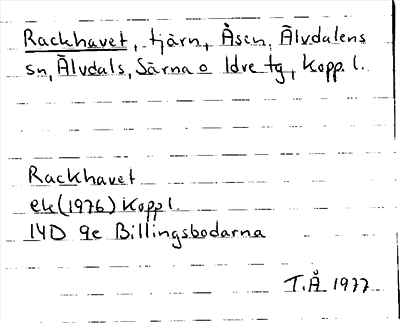 Rackhavet, tjärn, Åsen, Älvdalens
sn, Älvdals, Särna o Idre tg, Kopp. l.
Rackhavet
ek (1976) Kopp l.
14D 9e Billingsbodarna
T.Å 1977